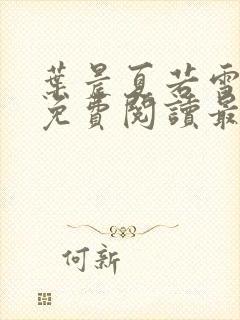 葉晨夏若雪
免費閱讀最
何新